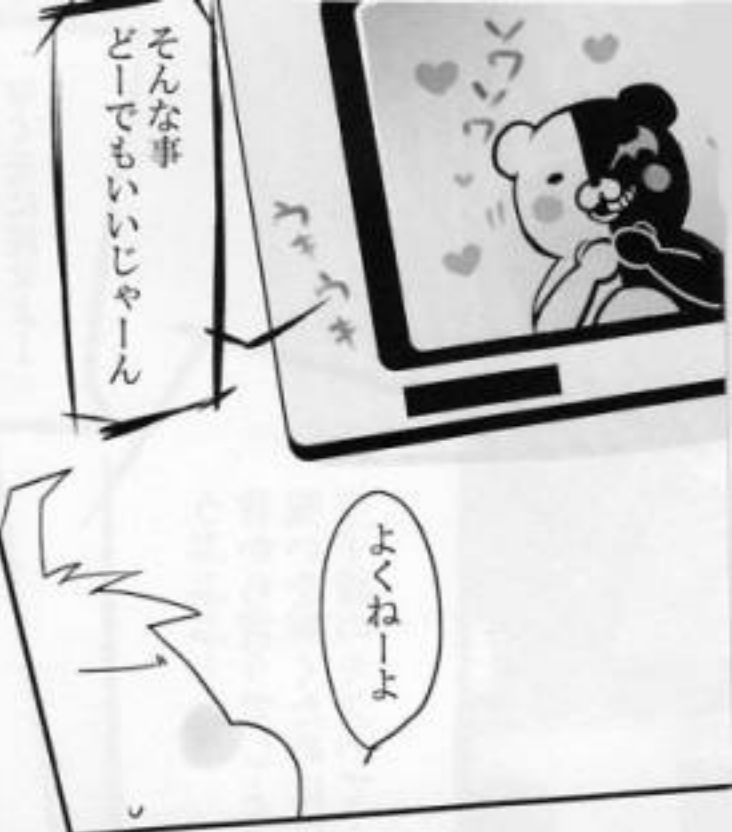 ソワソワ
ウキウキ
そんな事
どーでもいいじゃーん
よくねーよ